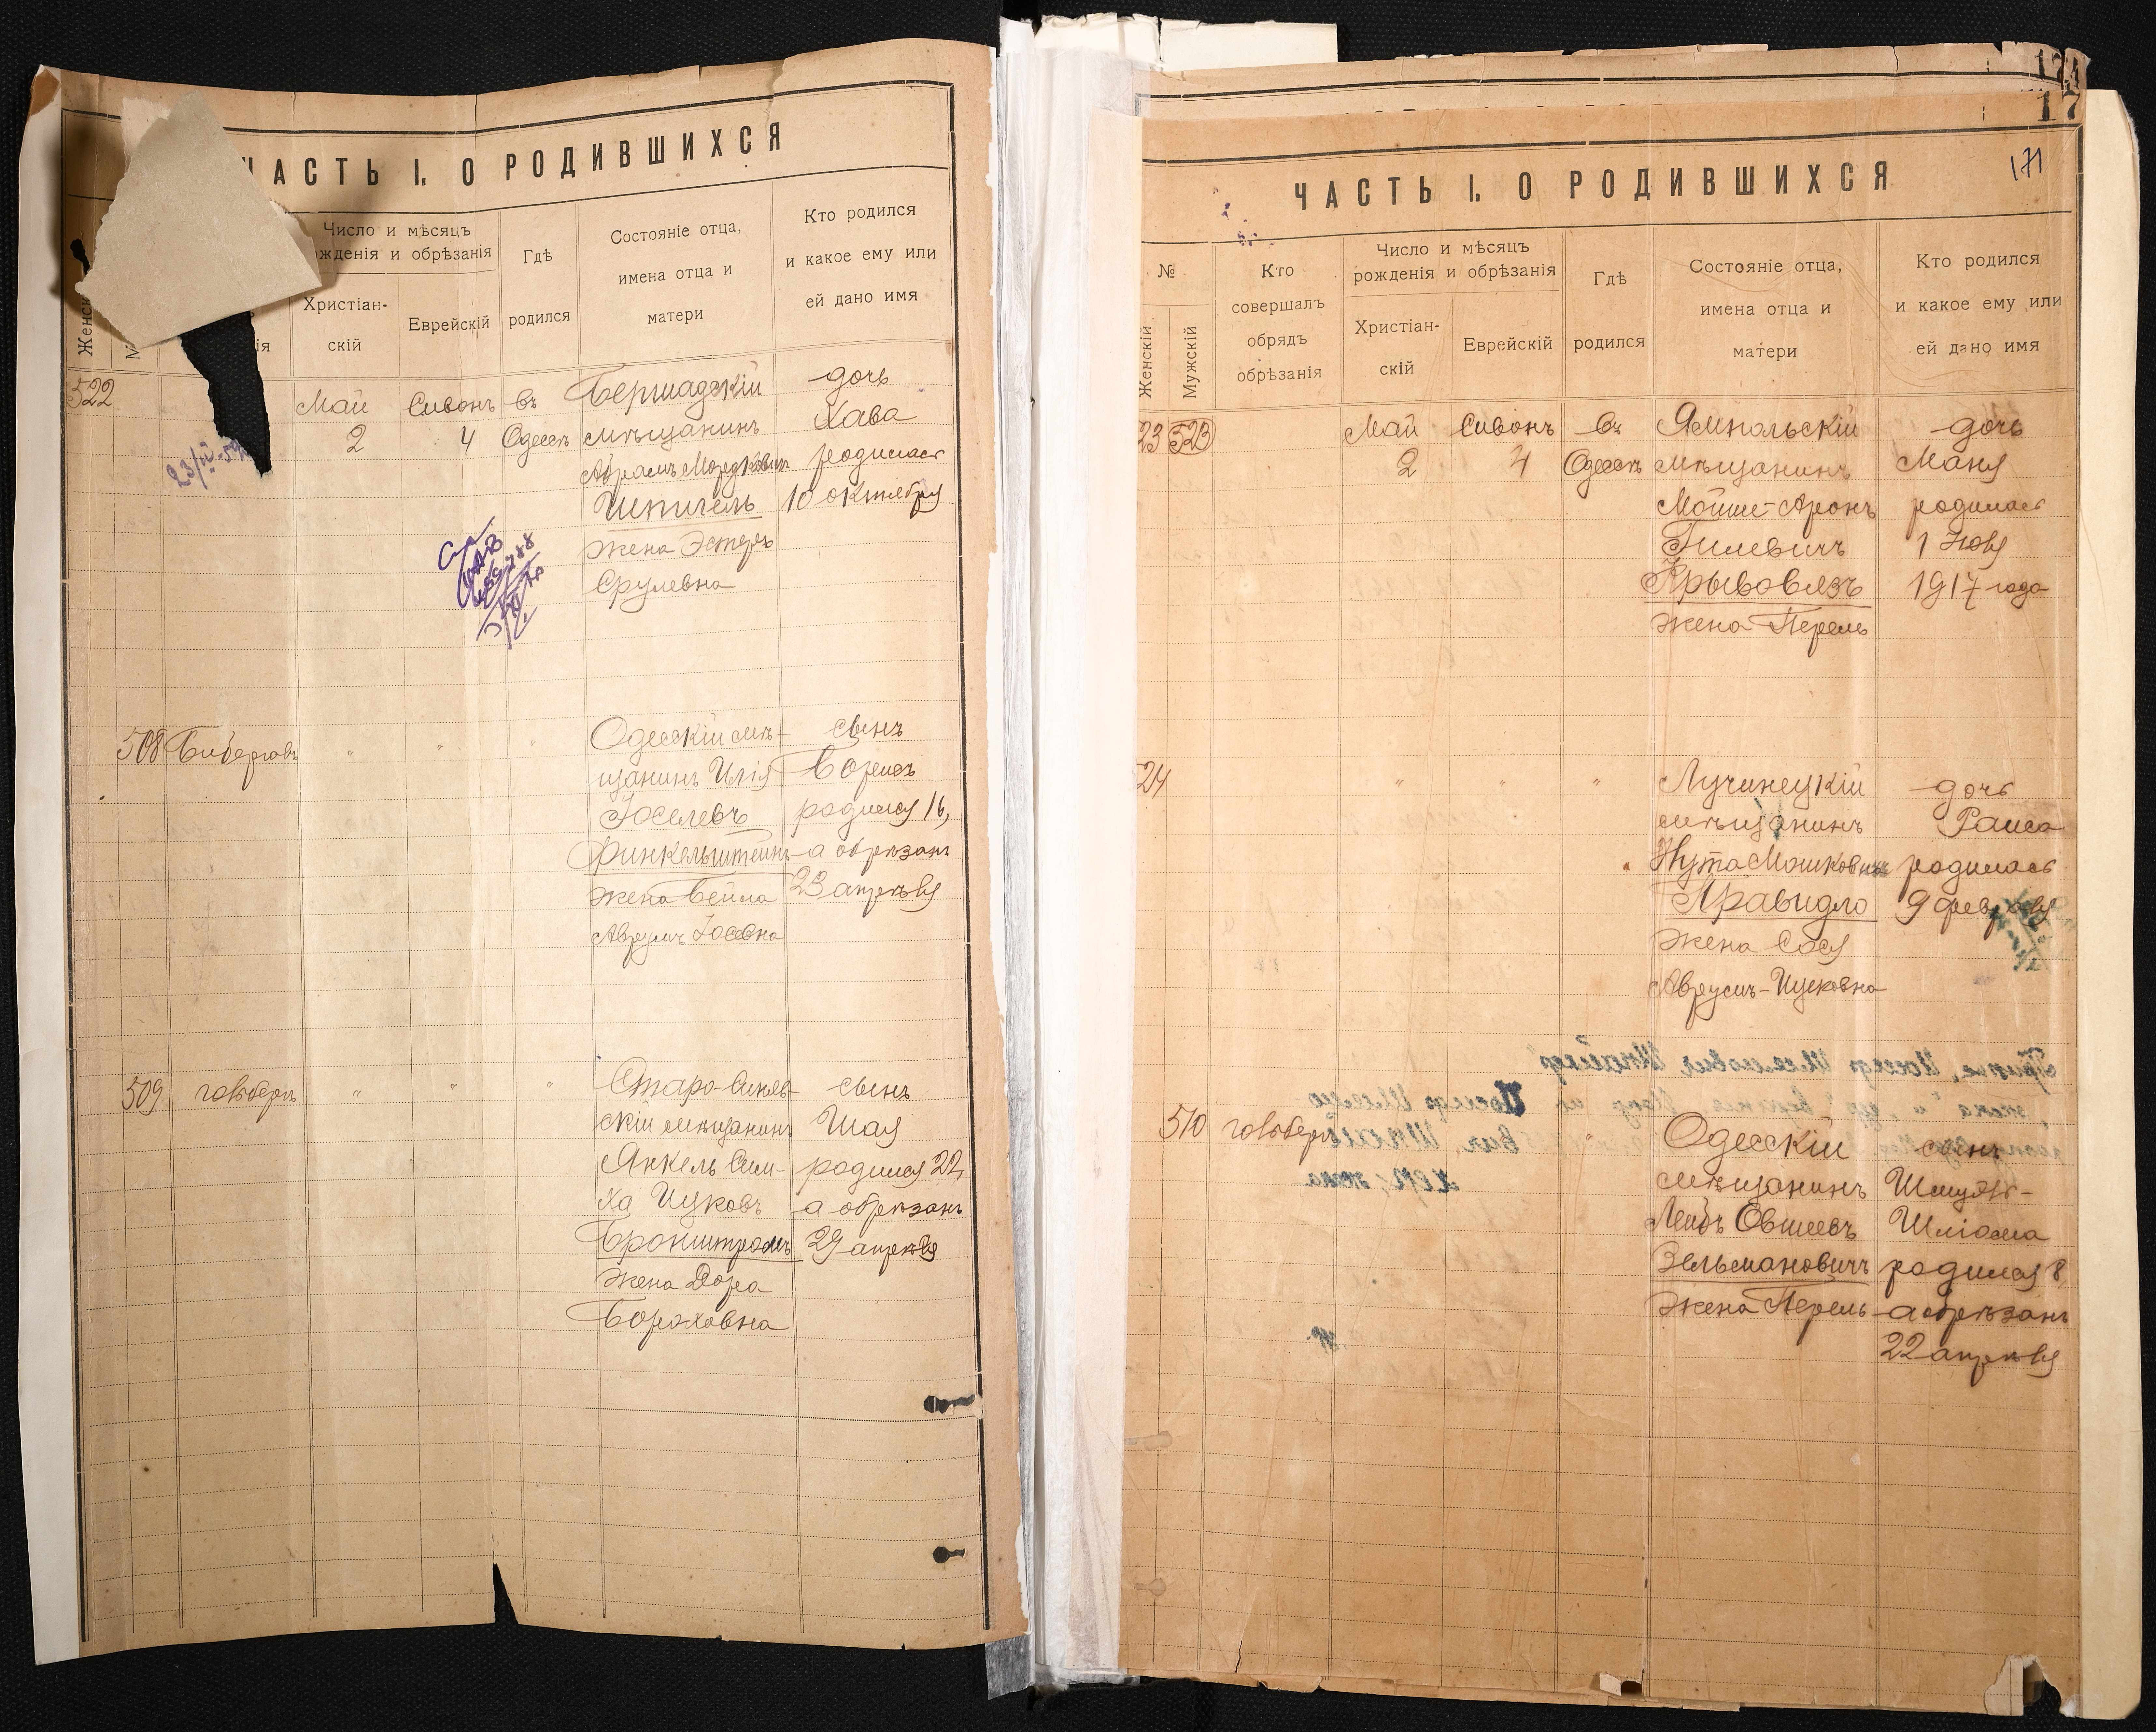 ЧАСТЬ I. О РОДИВШИХСЯ
Число и мѣсяцъ
рожденія и обрѣзанія
Женскій
Христіан-
скій
Еврейскій
Гдѣ
родился
Состояніе отца,
имена отца и
матери
Кто родился
и какое ему или
ей дано имя
522
Май
2
Сивонъ
4
въ
Одессѣ
Бершадскій
мѣщанинъ
Абрамъ Мордковичъ
Шпигель
жена Эстеръ
Срулевна
дочь
Хава
родилась
10 октября
508
"
"
"
Одесскій мѣ-
щанинъ Илія
Іоселевъ
Финкельштейнъ
жена Бейла
Аврумъ Іосевна
сынъ
Борисъ
родился 16,
а обрѣзанъ
23 апрѣля
509
гольдберъ
"
"
"
Старо-Синяв-
скій мѣщанинъ
Янкель Сим-
ха Ицковъ
Бронштромъ
жена Дора
Бороховна
сынъ
Шая
родился 22,
а обрѣзанъ
29 апрѣля
17
171
ЧАСТЬ I. О РОДИВШИХСЯ
№
Женскій
Мужскій
Кто
совершалъ
обрядъ
обрѣзанія
Число и мѣсяцъ
рожденія и обрѣзанія
Христіан-
скій
Еврейскій
Гдѣ
родился
Состояніе отца,
имена отца и
матери
Кто родился
и какое ему или
ей дано имя
23
523
Май
2
Сивонъ
4
въ
Одессѣ
Ямпольскій
мѣщанинъ
Мойше-Аронъ
Гилевичъ
Крывовязъ
жена Перель
дочь
Маня
родилась
1 Іюля
1917 года
24
"
"
"
Лучинецкій
мѣщанинъ
Нута Мошковичъ
Правидло
жена Сося
Аврумъ-Ицковна
дочь
Раиса
родилась
9 февраля
510
гольдберъ
"
Одесскій
мѣщанинъ
Лейбъ Овшіевъ
Зельмановичъ
жена Перель
сынъ
Шмуль-
Шліома
родился 8
а обрѣзанъ
22 апрѣля